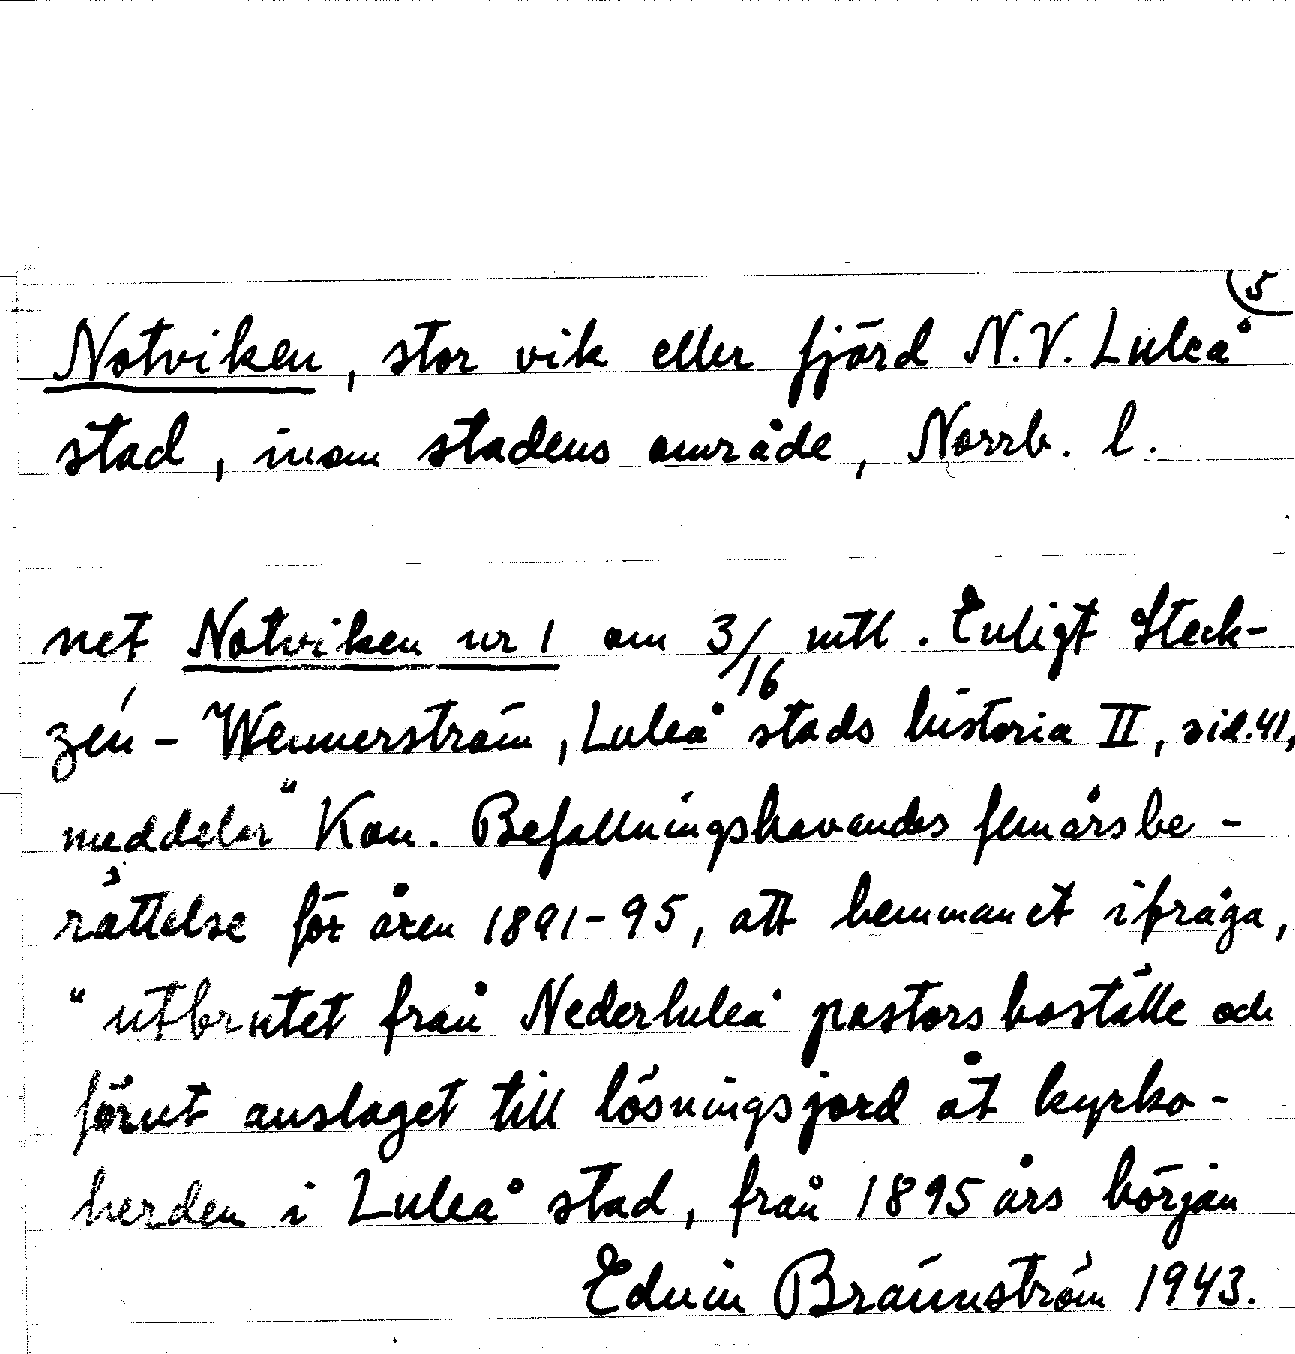 5
Notviken, stor vik eller fjärd N.V. Luleå
stad, inom stadens område, Norrb. l.
net Notviken nr 1 om 3/16 mtl. Enligt Steck-
zén - Wennerström, Luleå stads historia II, sid. 41,
meddelar "Kon. Befallningshavandes femårsbe-
rättelse för åren 1891-95, att hemmanet ifråga,
"utbrutet från Nederluleå pastorsboställe och
förut anslaget till lösningsjord åt kyrko-
herden i Luleå stad, från 1895 års början
Edvin Brännström 1943.